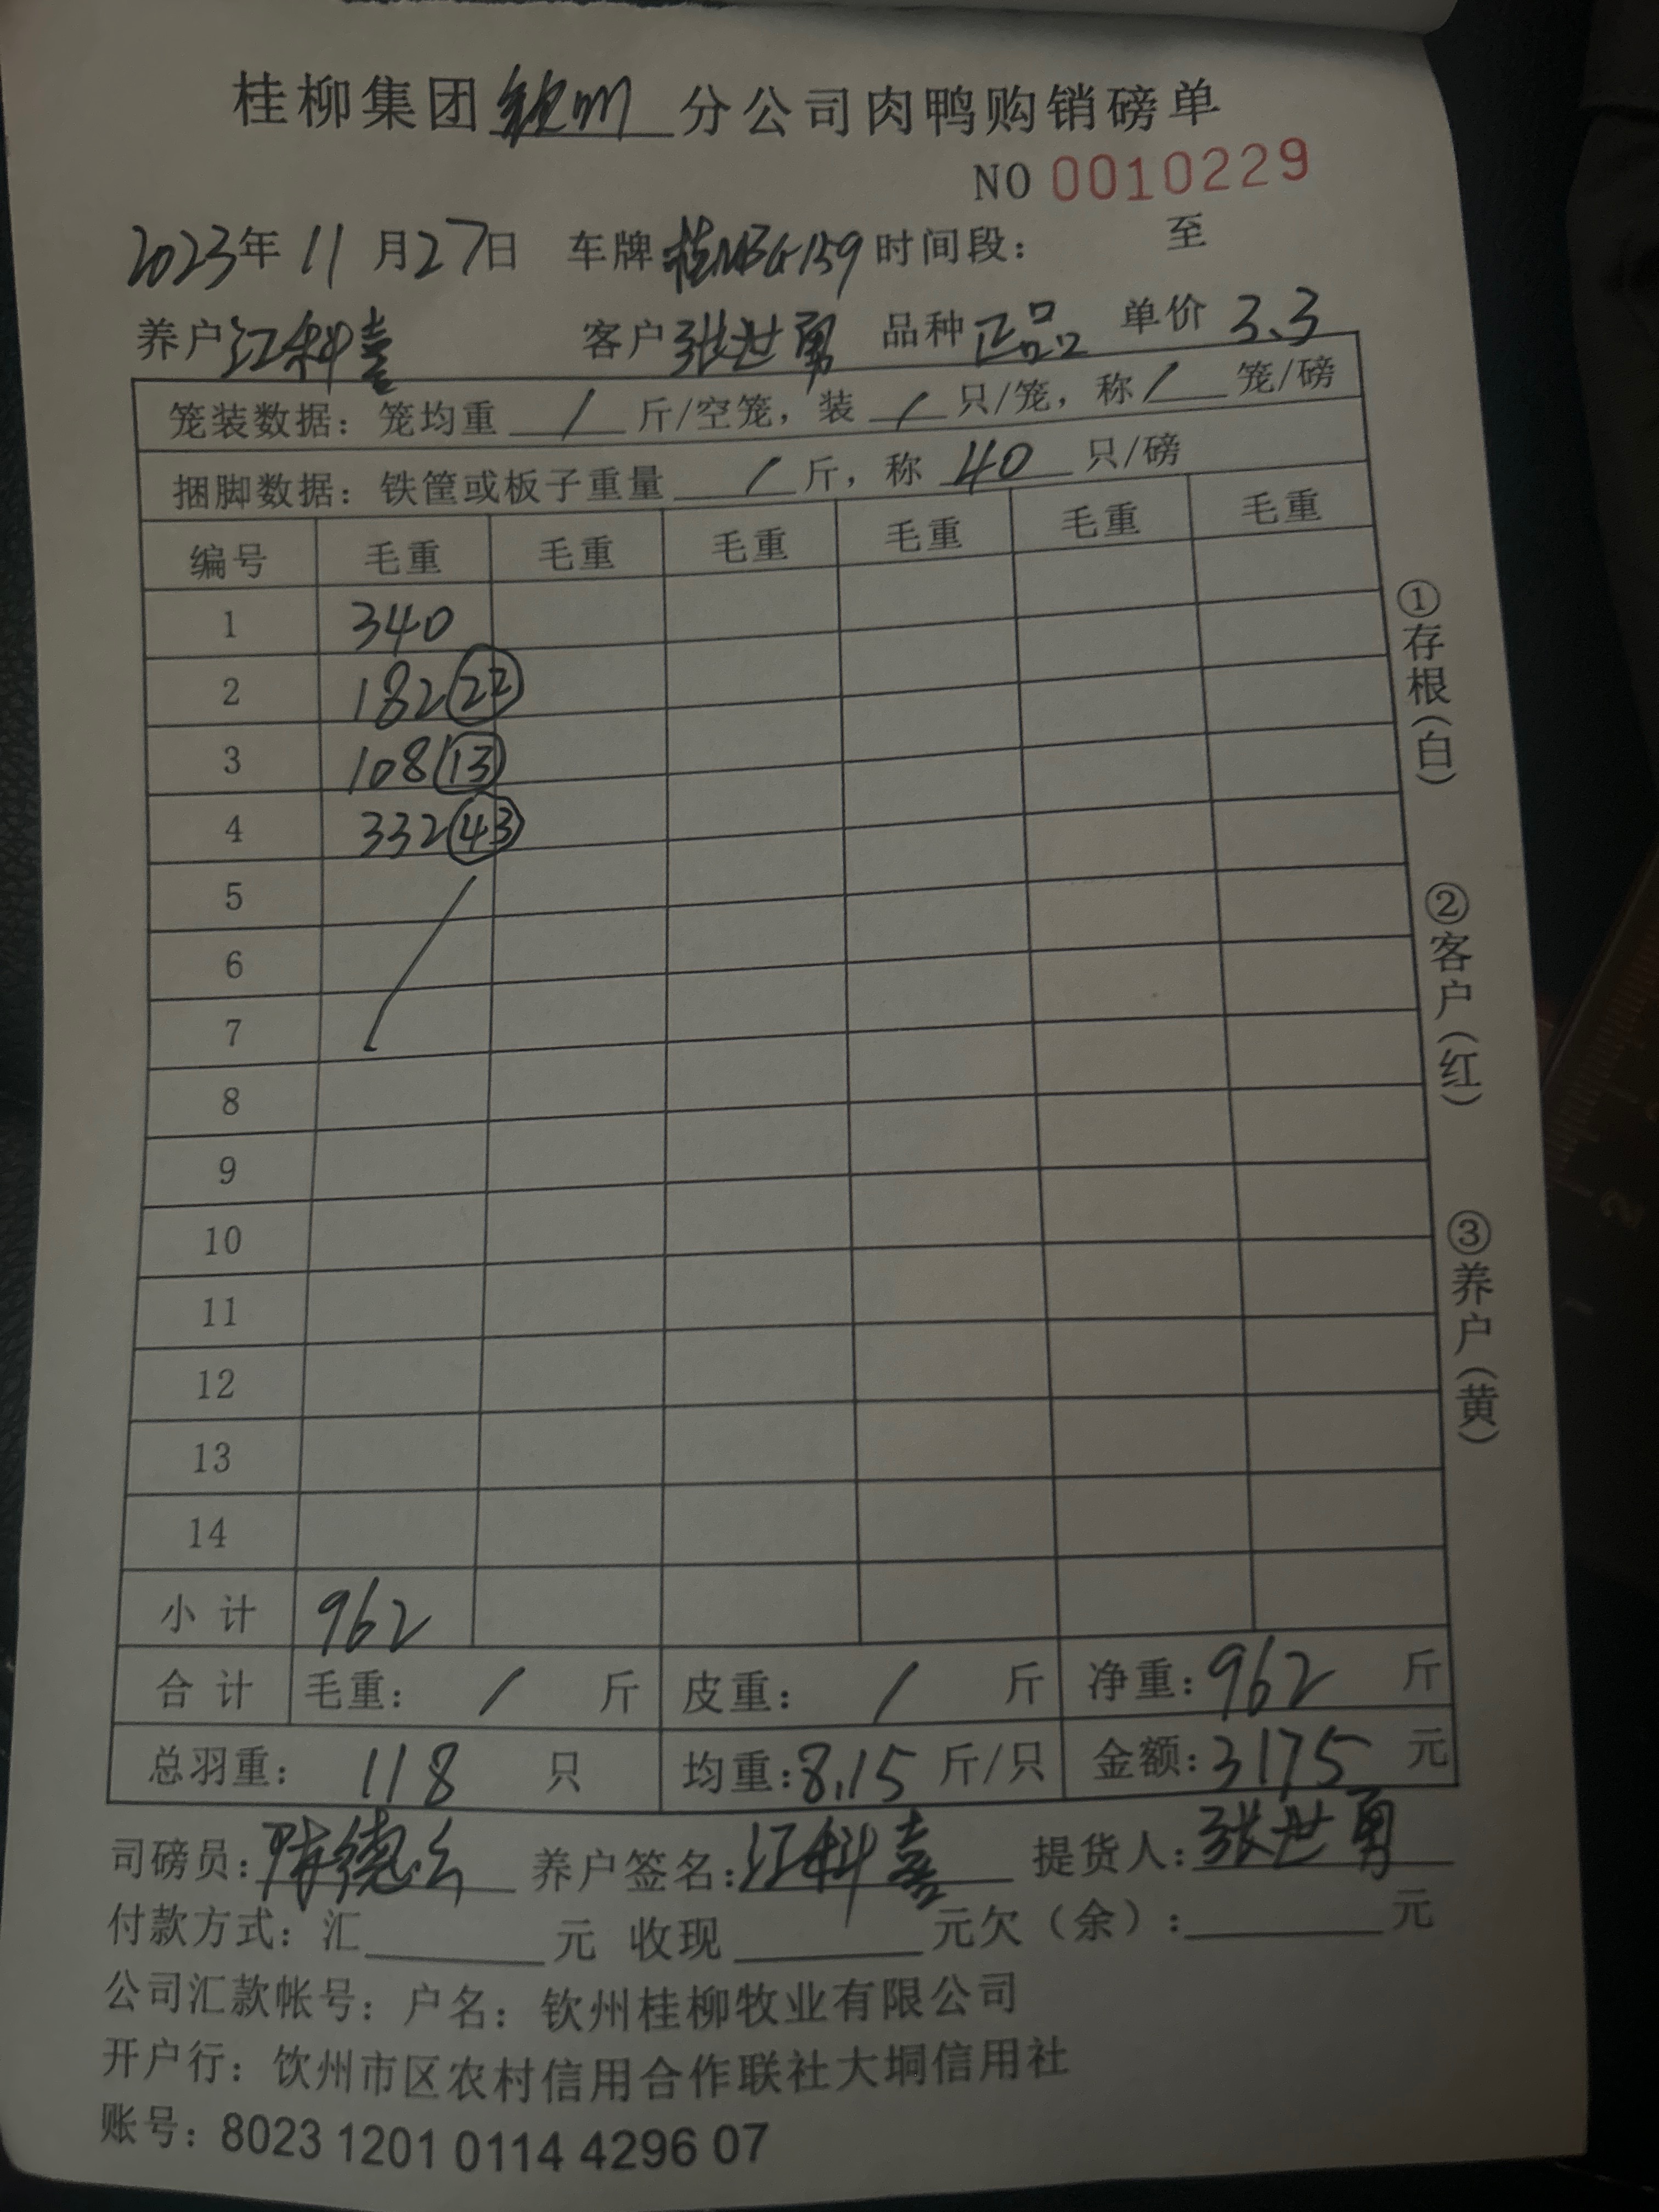 桂柳集团钦州分公司肉鸭购销磅单
NO 0010229
2023年11月27日 车牌桂NBG159时间段： 至
养户江科喜 客户张世勇 品种正品 单价3.3
笼装数据：笼均重 / 斤/空笼，装 / 只/笼，称 / 笼/磅
捆脚数据：铁筐或板子重量 / 斤，称 40 只/磅
编号 毛重 毛重 毛重 毛重 毛重 毛重
1 340
2 182 22
3 108 13
4 332 43
5
6
7
8
9
10
11
12
13
14
小计 962
合计 毛重： / 斤 皮重： / 斤 净重：962 斤
总羽重： 118 只 均重：8.15 斤/只 金额：3175 元
司磅员：德 养户签名：江科喜 提货人：张世勇
付款方式：汇 元 收现 元欠（余）： 元
公司汇款帐号：户名：钦州桂柳牧业有限公司
开户行：钦州市区农村信用合作联社大垌信用社
账号：8023 1201 0114 4296 07
①存根（白）
②客户（红）
③养户（黄）